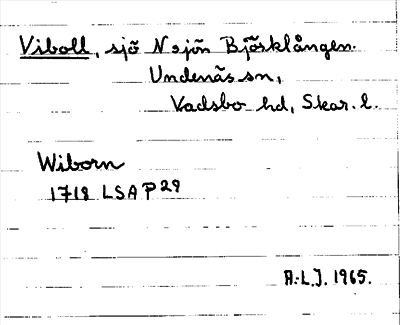 Viboll, sjö N sjön Björklången.
Undenäs sn,
Vadsbo hd, Skar. l.
Wiborn
1718 LSA P 29
A.L.J. 1965.